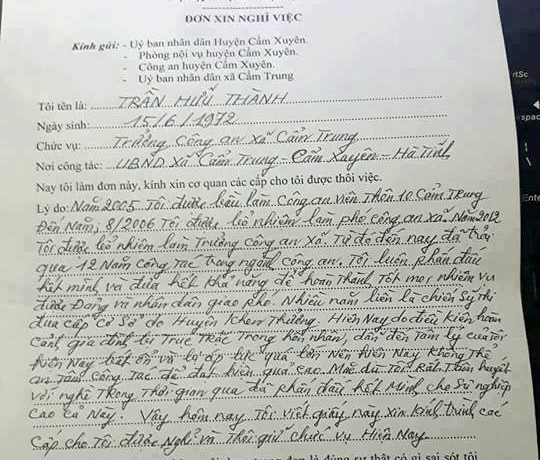 ĐƠN XIN NGHỈ VIỆC
Kính gửi: - Uỷ ban nhân dân Huyện Cẩm Xuyên.
- Phòng nội vụ huyện Cẩm Xuyên.
- Công an huyện Cẩm Xuyên.
- Uỷ ban nhân dân xã Cẩm Trung
Tôi tên là: TRẦN HỮU THÀNH
Ngày sinh: 15/6/1972
Chức vụ: Trưởng Công an xã Cẩm Trung
Nơi công tác: UBND xã Cẩm Trung - Cẩm Xuyên - Hà Tĩnh
Nay tôi làm đơn này, kính xin cơ quan các cấp cho tôi được thôi việc.
Lý do: Năm 2005 Tôi được bầu làm Công an viên Thôn 10 Cẩm Trung
Đến Năm, 8/2006 Tôi được bổ nhiệm làm phó công an xã. Năm 2012
Tôi được bổ nhiệm làm Trưởng công an xã. Từ đó đến nay đã trải
qua 12 Năm công tác trong ngành công an. Tôi luôn phấn đấu
hết mình và đưa hết khả năng để hoàn thành tốt mọi nhiệm vụ
được Đảng và nhân dân giao phó. Nhiều năm liền là chiến sỹ thi
đua cấp cơ sở do Huyện khen thưởng. Hiện Nay do điều kiện hoàn
cảnh gia đình từ trục trặc trong hôn nhân, dẫn đến tâm lý của tôi
hiện Nay bất ổn và bị áp lực quá lớn nên hiện Nay không thể
an tâm công tác để đạt hiệu quả cao. Mặc dù tôi Rất tâm huyết
với nghề trong thời gian qua đã phấn đấu hết mình cho sự nghiệp
cao cả Này. Vậy hôm nay tôi viết giấy này xin kính trình các
cấp cho tôi được Nghỉ và thôi giữ chức vụ Hiện Nay.
đúng sự thật có gì sai sót tôi